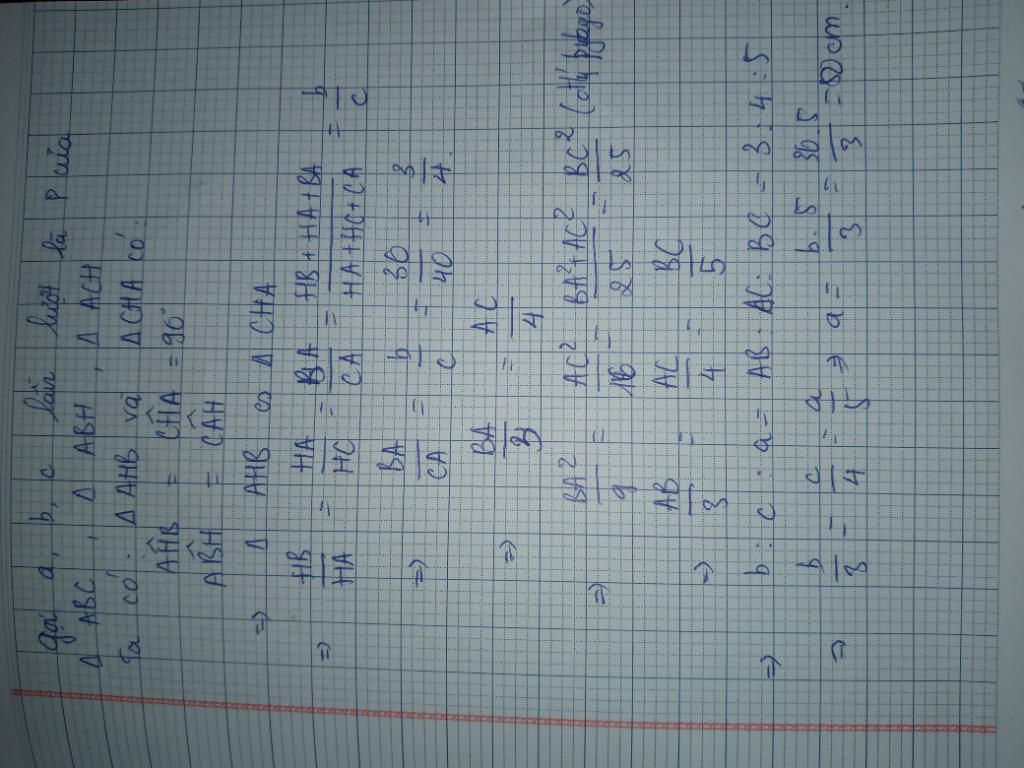 Gọi a, b, c lần lượt là P của
Δ ABC, Δ ABH, Δ ACH
Ta có: Δ AHB và ΔCHA có:
AĤB = CĤA = 90°
AB̂H = CÂH
=> Δ AHB ∽ Δ CHA
=> HB/HA = HA/HC = BA/CA = HB + HA + BA/HA + HC + CA = b/c
=> BA/CA = b/c = 30/40 = 3/4.
=> BA/3 = AC/4
=> BA²/9 = AC²/16 = BA²+AC²/25 = BC²/25 (đlý pytago)
=> AB/3 = AC/4 = BC/5
=> b : c : a = AB : AC : BC = 3 : 4 : 5
=> b/3 = c/4 = a/5 => a = b.5/3 = 30.5/3 = 50 cm.